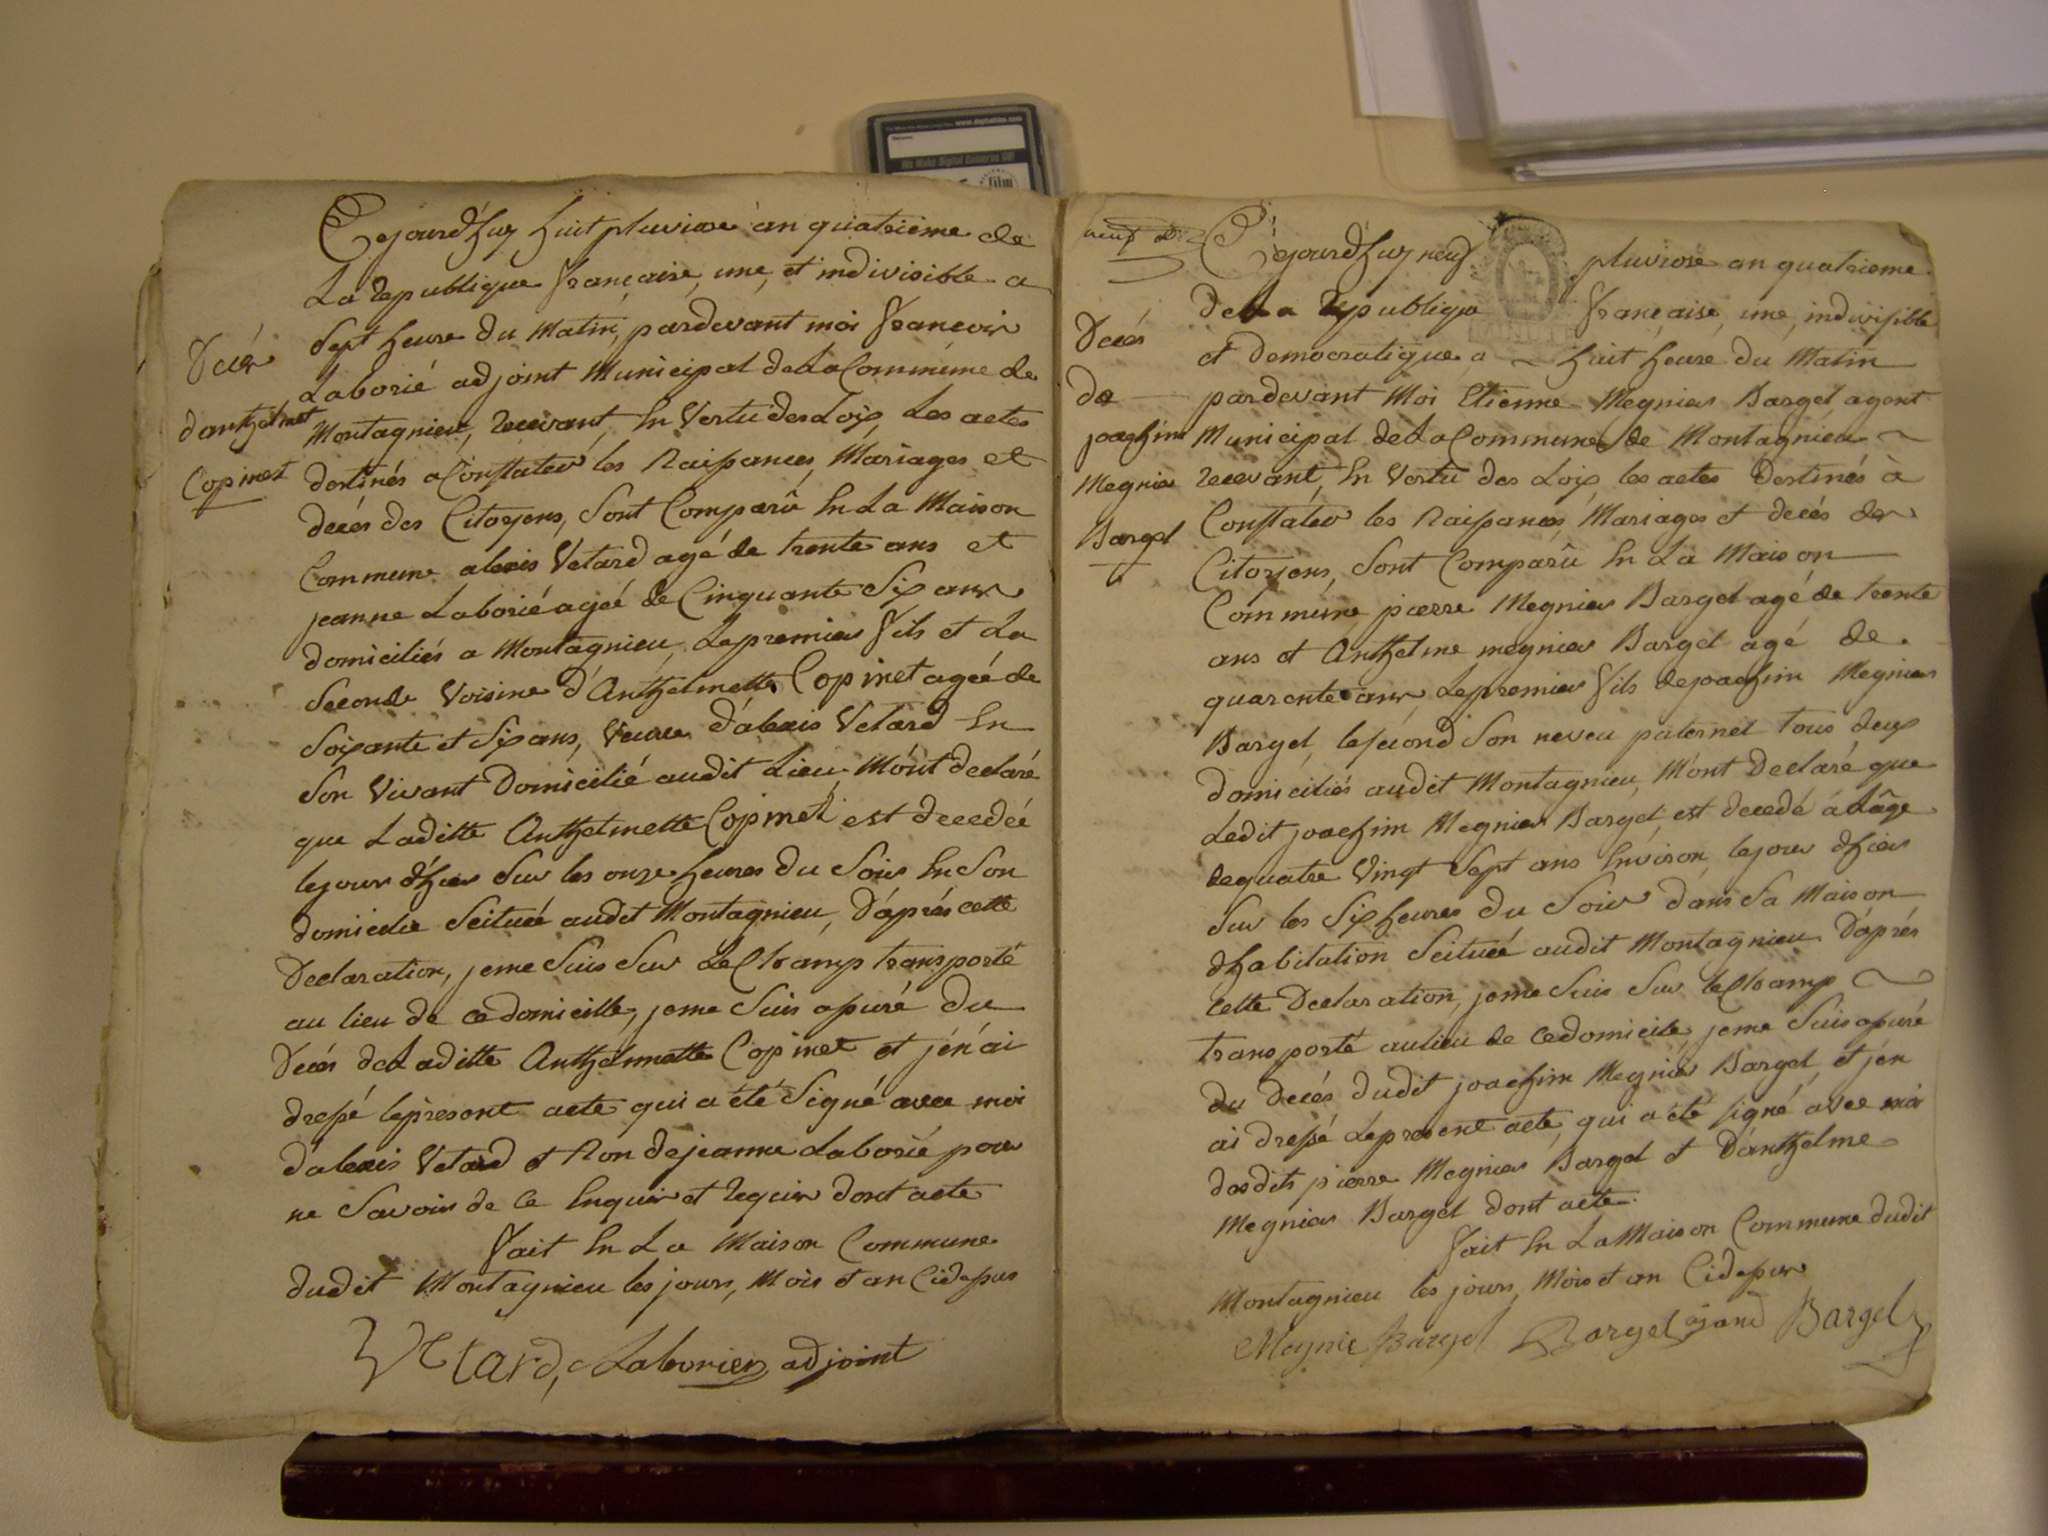 Cejourd'huy huit pluviose an quatrième de
La Republique française, une, et indivisible a
Sept heure du Matin, pardevant moi francois
Laborié adjoint Municipal de La Commune de
Montagnieu, recevant En Vertu des Loix, Les actes
destinés a Constater les Naissances, Mariages et
decés des Citoyens, Sont Comparû En La Maison
Commune alexis Vetard agé de trente ans et
jeanne Laborié ageé de Cinquante Six ans
domiciliés a Montagnieu, Le premier fils et La
Seconde Voisine d'Anthelmette Copinet ageé de
Soixante et Six ans, Veuve d'alexis Vetard En
Son Vivant Domicilié audit Lieu M'ont declaré
que Laditte Anthelmette Copinet est decedeé
le jour d'hier Sur les onze heures du Soir En Son
domicile Scitueé audit Montagnieu, D'aprés cette
Declaration, je me Suis Sur Le Champ transporté
au lieu de ce domicille, je me Suis assuré du
Decés de Laditte Anthelmette Copinet et j'en ai
dressé le present acte qui a été Signé avec moi
d'alexis Vetard et Non de jeanne Laborié pour
ne Savoir de ce Enquis et requis dont acte
fait En La Maison Commune
dudit Montagnieu les jours, Mois et an Cidessus
Vetard, Laborier adjoint
Decés
d'anthelmet
Copinet
Cejourd'huy neuf pluviose an quatrieme
De La Republique française, une, indivisible
et democratique a huit heure du Matin
pardevant Moi Etienne Megnier Bargel agent
Municipal de La Commune de Montagnieu
recevant, En Vertu des Loix les actes Destinés à
Constater les Naissances, Mariages et decés des
Citoyens, Sont Comparû En La Maison
Commune pierre Megnier Bargel agé de trente
ans et Anthelme megnier Bargel agé de
quarente ans, Le premier fils de joachim Megnier
Bargel, le second Son neveu paternel tous deux
domiciliés audit Montagnieu, M'ont Declaré que
Ledit joachim Megnier Bargel, est decedé á L'âge
de quatre Vingt Sept ans Environ, le jour d'hier
Sur les Six heures du Soir dans Sa Maison
d'habitation Scitueé audit Montagnieu D'aprés
cette Declaration, je me Suis Sur le Champ
transporté au lieu de ce domicile, je me Suis assuré
du Decés dudit joachim Megnier Bargel et j'en
ai dressé Le present acte, qui a été signé avec moi
desdits pierre Megnier Bargel et D'anthelme
Megnier Bargel dont acte.
fait En La Maison Commune dudit
Montagnieu les jours, Mois et an Cidessus
Megnie Bargel Bargel agand Bargel
neuf
Decés
de
joachim
Megnier
Bargel
www.digitalfilm.com
We Make Digital Cameras GO!
film